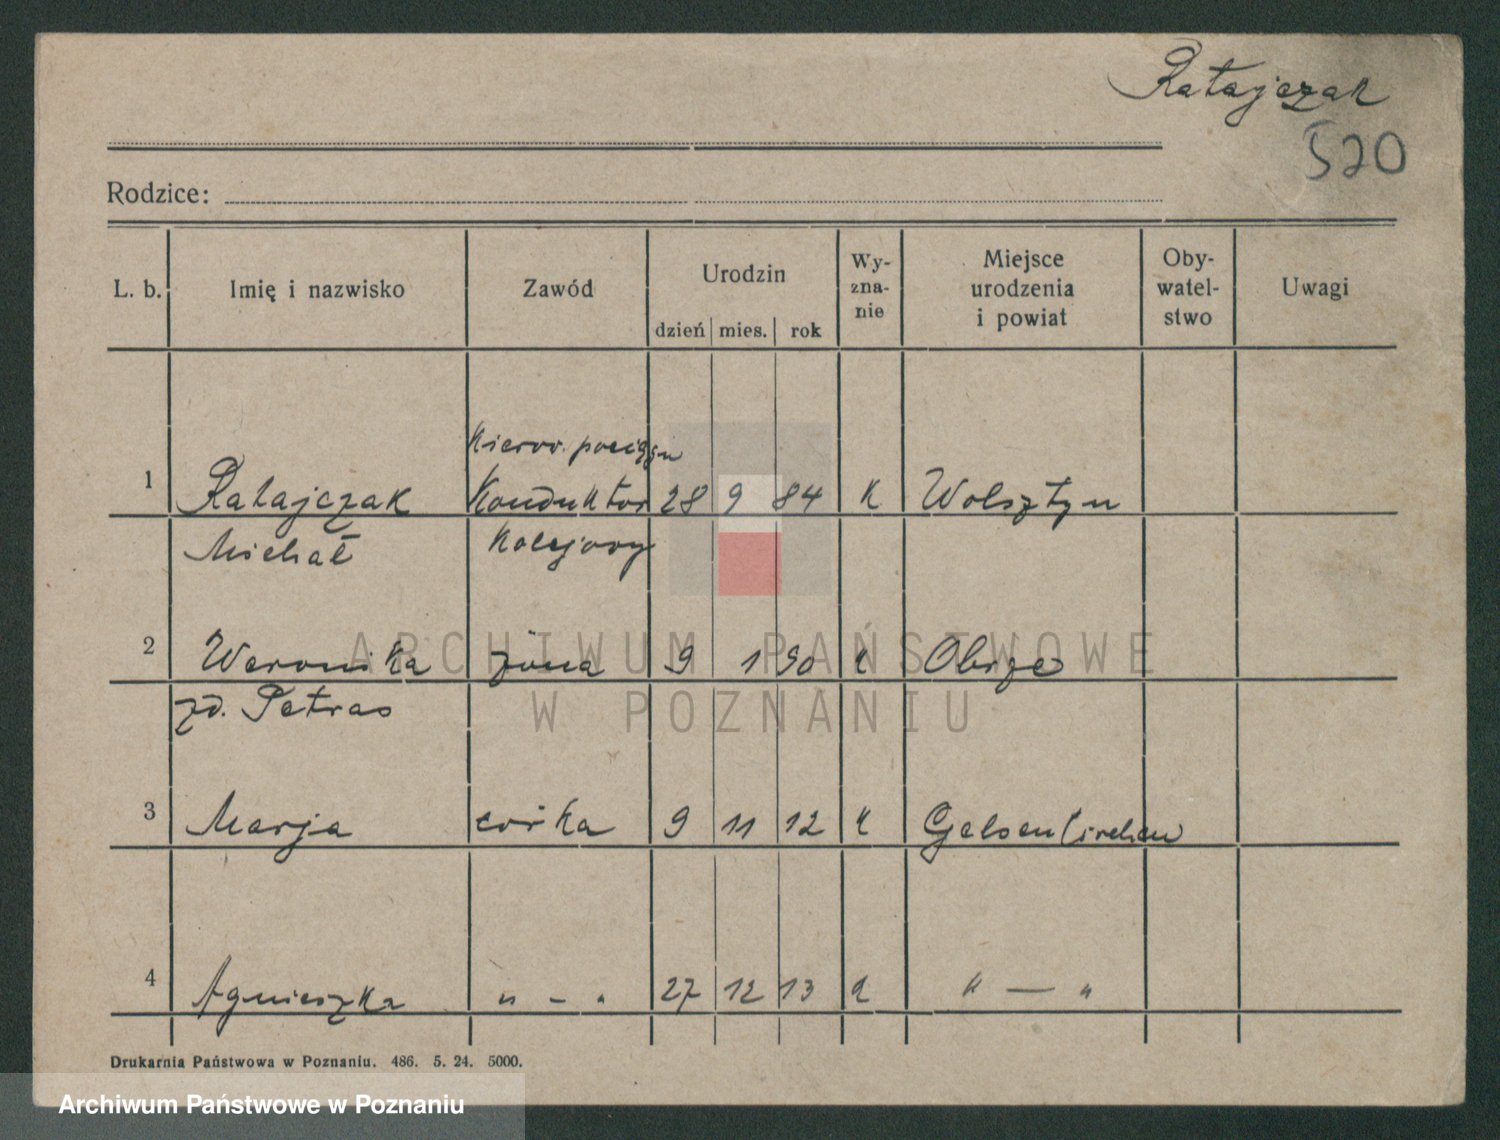 Ratajczak
520
Rodzice:
L. b. Imię i nazwisko Zawód Urodzin dzień mies. rok Wy-zna-nie Miejsce urodzenia i powiat Oby-watel-stwo Uwagi
Kierow. pociągu
1 Ratajczak Konduktor 28 9 84 K Wolsztyn
Michał kolejowy
2 Weronika żona 9 1 90 K Obrze
zd. Petras
3 Marja córka 9 11 12 K Gelsenkirchen
4 Agnieszka " — " 27 12 13 K " — "
Drukarnia Państwowa w Poznaniu. 486. 5. 24. 5000.
ARCHIWUM PAŃSTWOWE
W POZNANIU
Archiwum Państwowe w Poznaniu